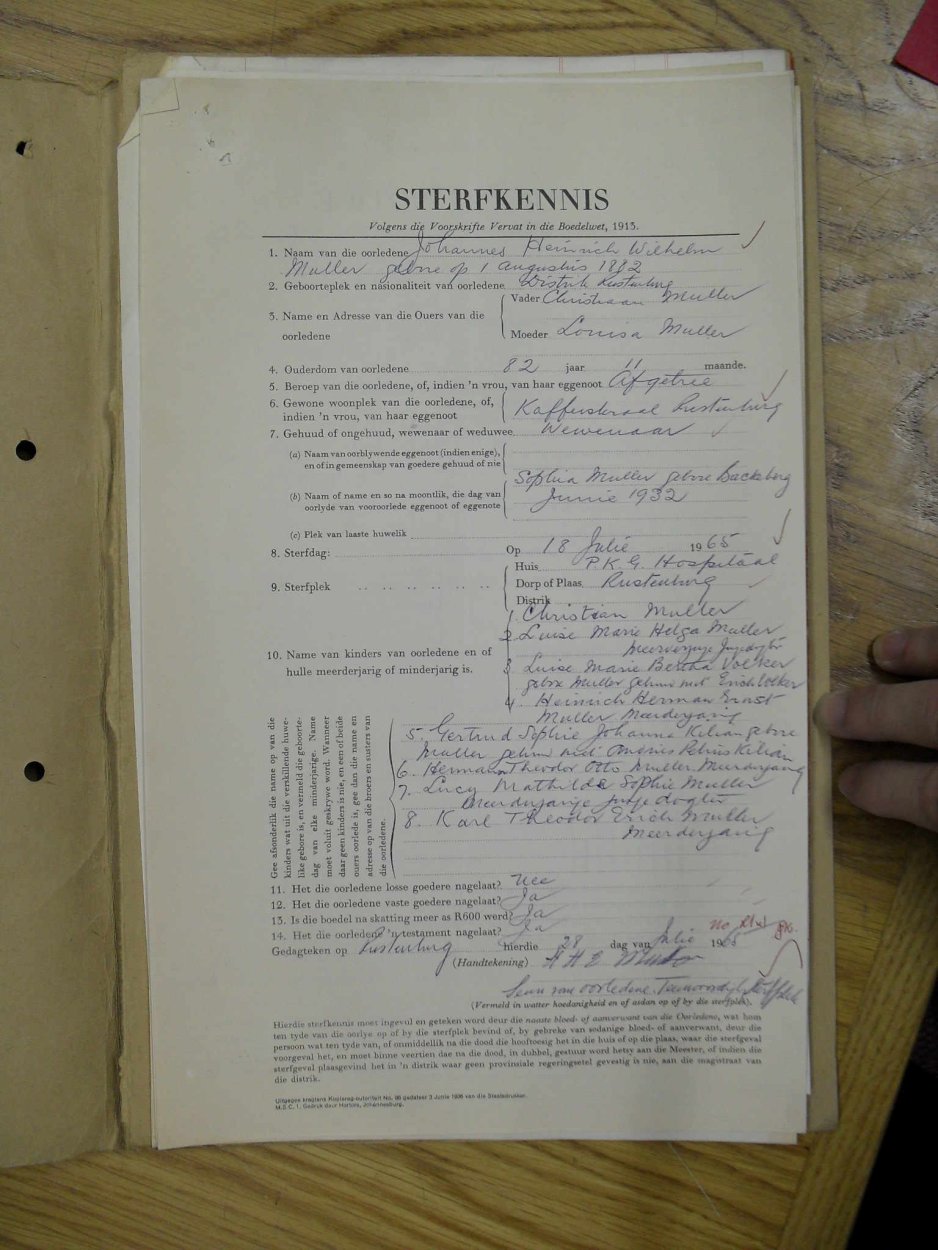 STERFKENNIS
Volgens die Voorskrifte Vervat in die Boedelwet, 1913.
1. Naam van die oorledene Johannes Heinrich Wilhelm
Muller gebore op 1 Augustus 1882
2. Geboorteplek en nasionaliteit van oorledene Distrik Rustenburg
3. Name en Adresse van die Ouers van die oorledene
Vader Christiaan Muller
Moeder Louisa Muller
4. Ouderdom van oorledene 82 jaar 11 maande.
5. Beroep van die oorledene, of, indien 'n vrou, van haar eggenoot Afgetree
6. Gewone woonplek van die oorledene, of,
indien 'n vrou, van haar eggenoot Kafferskraal Rustenburg
7. Gehuud of ongehuud, wewenaar of weduwee Wewenaar
(a) Naam van oorblywende eggenoot (indien enige),
en of in gemeenskap van goedere gehuud of nie
(b) Naam of name en so na moontlik, die dag van
oorlyde van vooroorlede eggenoot of eggenote
Sophia Muller gebore Backeberg
Junie 1932
(c) Plek van laaste huwelik
8. Sterfdag: Op 18 Julie 1965
9. Sterfplek
Huis P.K.G. Hospitaal
Dorp of Plaas Rustenburg
Distrik
10. Name van kinders van oorledene en of
hulle meerderjarig of minderjarig is.
1. Christian Muller
2. Luise Marie Helga Muller
3. Luise Marie Bertha Volker
gebore Muller gehuud met Erich Volker
4. Heinrich Herman Ernst
Muller Meerderjarig
Gee afsonderlik die name op van die
kinders wat uit die verskillende huwe-
like gebore is, en vermeld die geboorte-
dag van elke minderjarige. Name
moet voluit geskrywe word. Wanneer
daar geen kinders is nie, en een of beide
ouers oorlede is, gee dan die name en
adresse op van die broers en susters van
die oorledene.
5. Gertrud Sophie Johanna Kilian gebore
Muller gehuud met Kilian
6. Hermann Theodor Otto Muller Meerderjarig
7. Lucy Mathilde Sophie Muller
8. Karl Theodor Erich Muller
Meerderjarig
11. Het die oorledene losse goedere nagelaat? Nee
12. Het die oorledene vaste goedere nagelaat? Ja
13. Is die boedel na skatting meer as R600 werd? Ja
14. Het die oorledene 'n testament nagelaat? Ja
Gedagteken op Rustenburg hierdie 28 dag van Julie 1965
(Handtekening)
Seun van oorledene
(Vermeld in watter hoedanigheid en of aldan op of by die sterfplek).
Hierdie sterfkennis moet ingevul en geteken word deur die naaste bloed- of aanverwant van die Oorledene, wat hom
ten tyde van die oorlye op of by die sterfplek bevind of, by gebreke van sodanige bloed- of aanverwant, deur die
persoon wat ten tyde van, of onmiddellik na die dood die hooftoesig het in die huis of op die plaas, waar die sterfgeval
voorgeval het, en moet binne veertien dae na die dood, in dubbel, gestuur word hetsy aan die Meester, of indien die
sterfgeval plaasgevind het in 'n distrik waar geen provinsiale regeringsetel gevestig is nie, aan die magistraat van
die distrik.
Uitgegee kragtens Kopiereg-outoriteit No. 96 gedateer 3 Junie 1936 van die Staatsdrukker.
M.S.C. 1. Gedruk deur Hortors, Johannesburg.